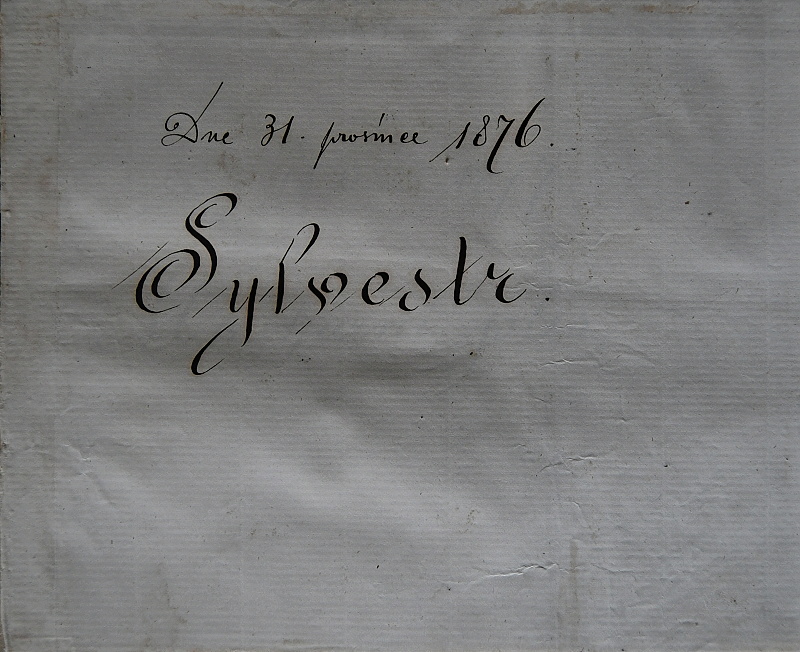 Dne 31. prosince 1876.
Sylvestr.